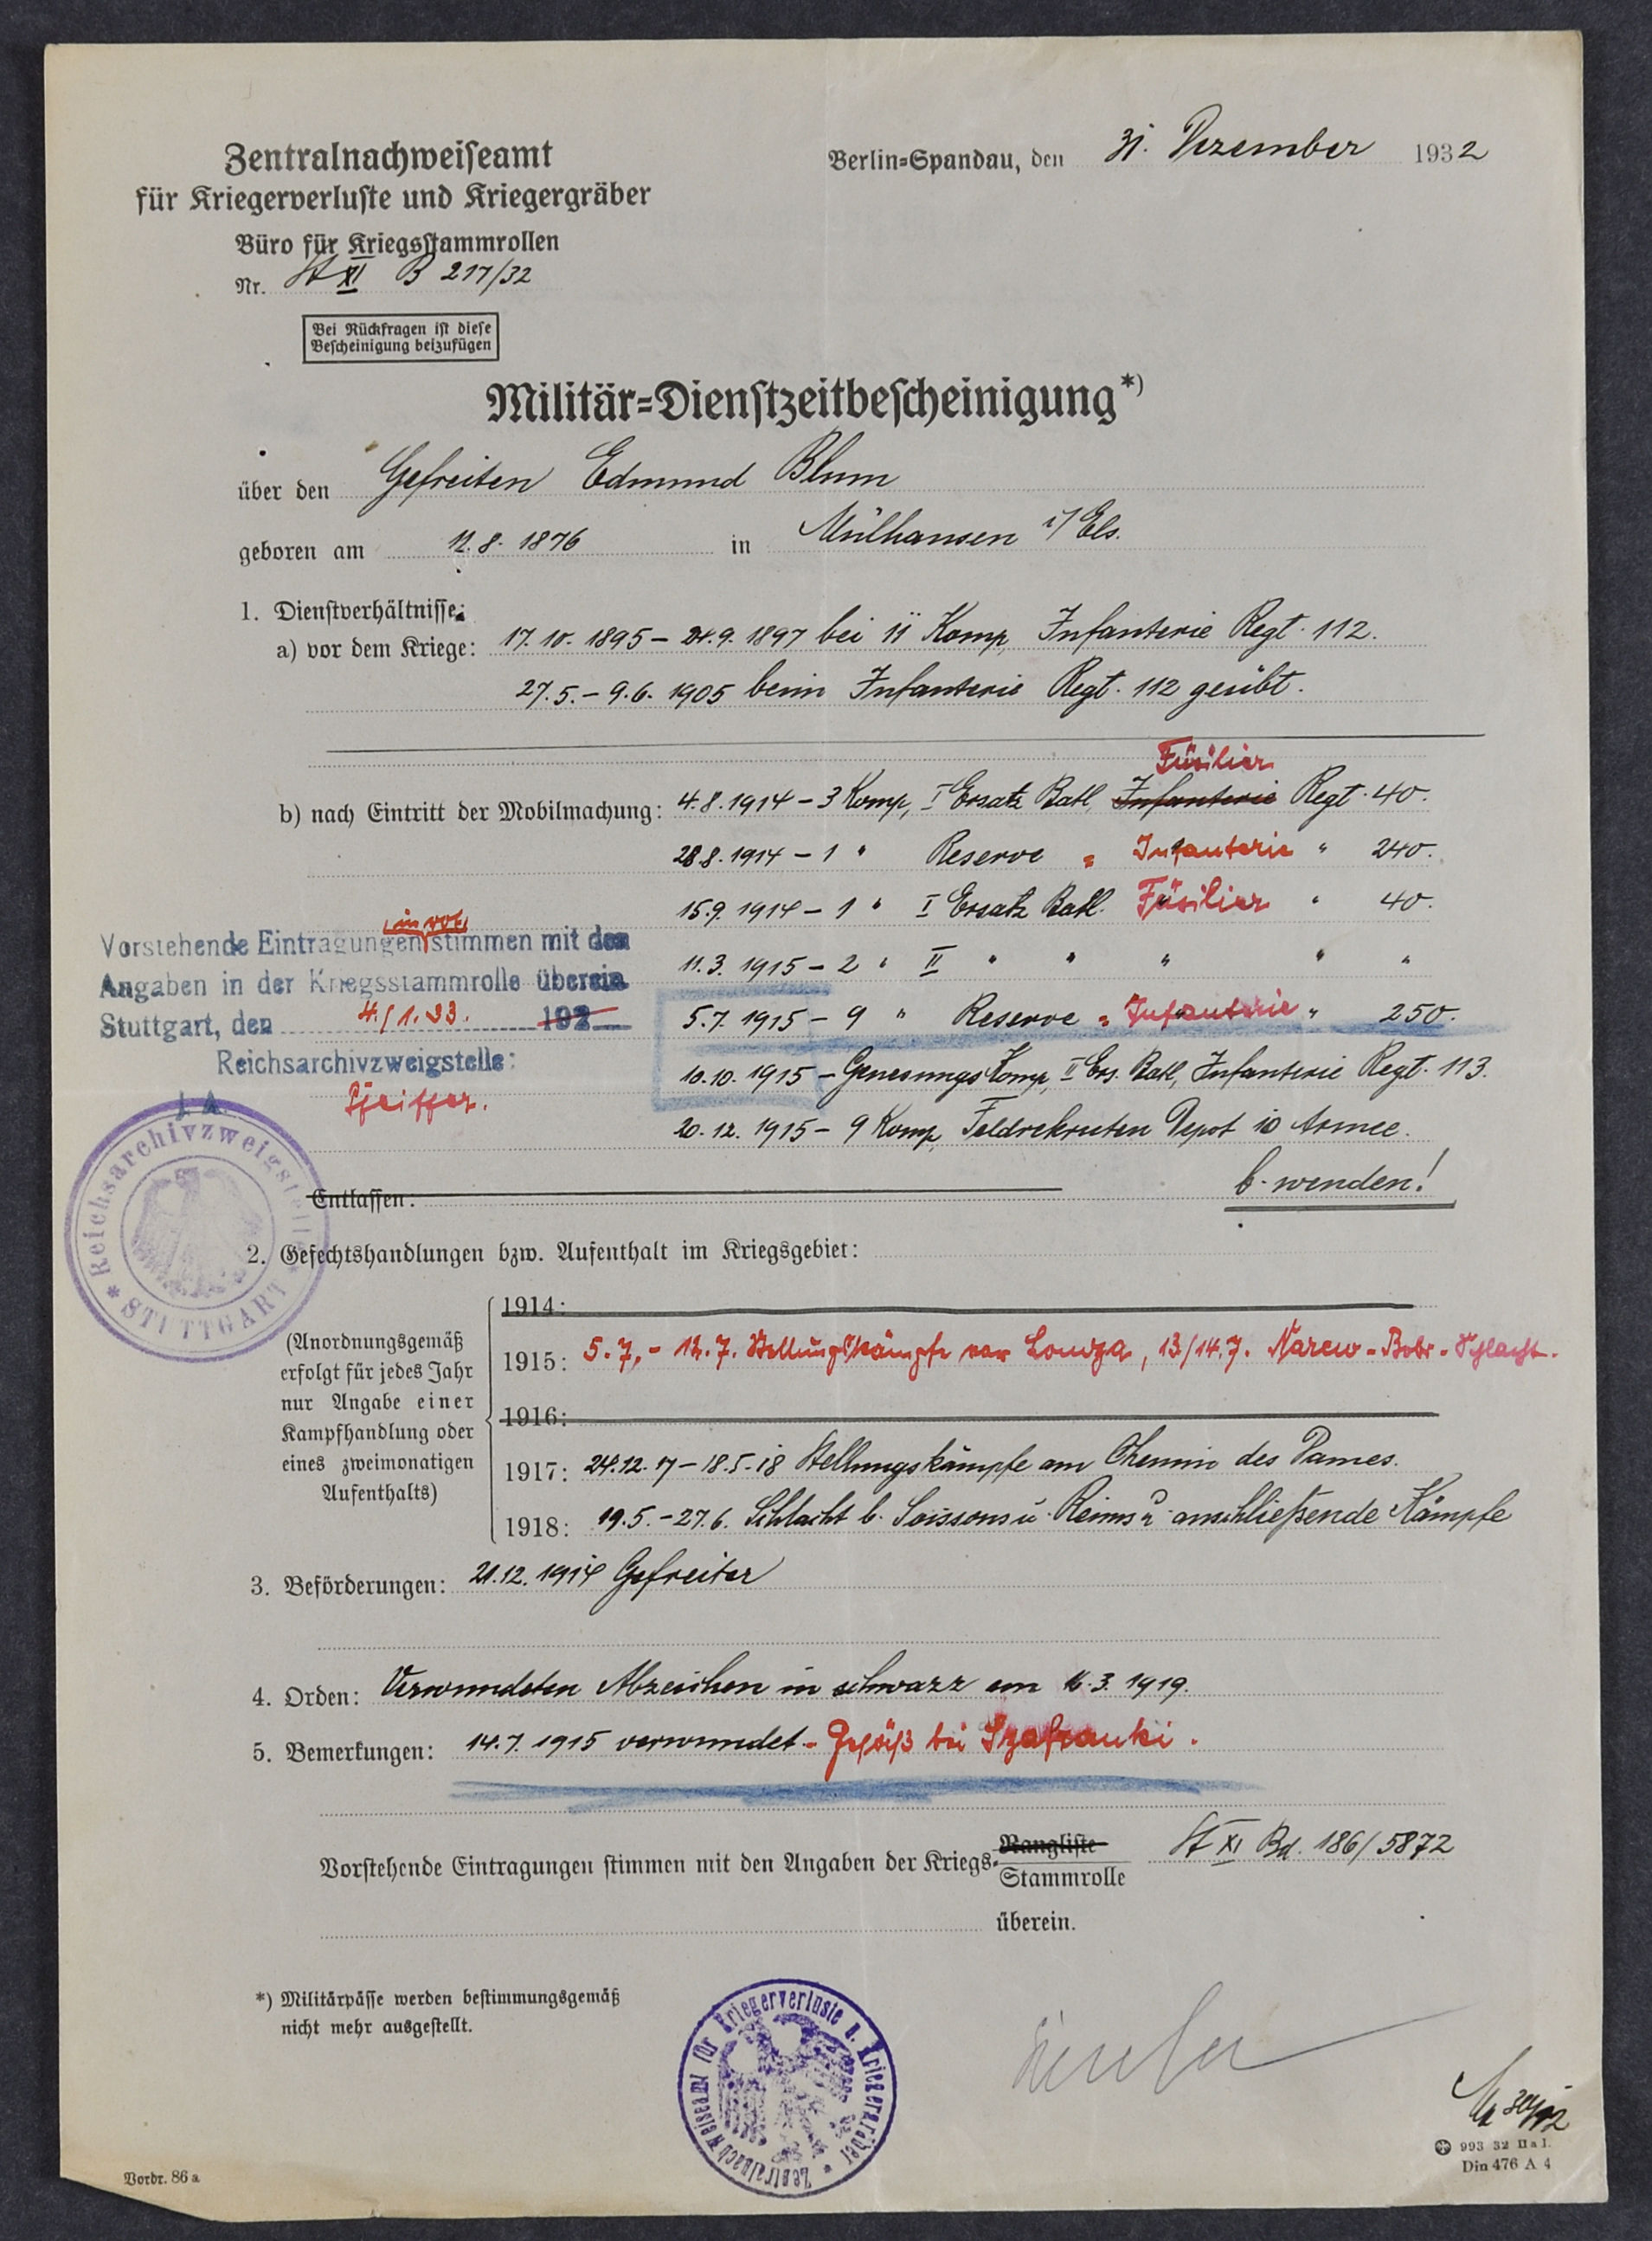 Zentralnachweiseamt
für Kriegerverluste und Kriegergräber
Büro für Kriegsstammrollen
Nr. St XI B 217/32
Berlin-Spandau, den 31. Dezember 1932
Bei Rückfragen ist diese
Bescheinigung beizufügen
Militär-Dienstzeitbescheinigung*)
über den Gefreiten Edmund Blum
geboren am 12.8.1876 in Mülhausen i/Els.
1. Dienstverhältnisse:
a) vor dem Kriege: 17.10.1895 – 21.9.1897 bei 11 Komp, Infanterie Regt. 112.
27.5. – 9.6.1905 beim Infanterie Regt. 112 geübt.
Füsilier
b) nach Eintritt der Mobilmachung: 4.8.1914 – 3 Komp, I Ersatz Batl, Infanterie Regt. 40.
28.8.1914 – 1 " Reserve = Infanterie " 240.
15.9.1914 – 1 " I Ersatz Batl. Füsilier " 40.
11.3.1915 – 2 " II " " " " "
5.7.1915 – 9 " Reserve = Infanterie " 250.
10.10.1915 – Genesungs Komp, II Ers. Batl, Infanterie Regt. 113.
20.12.1915 – 9 Komp, Feldrekruten Depot 10 Armee.
b. wenden!
in rot
Vorstehende Eintragungen stimmen mit den
Angaben in der Kriegsstammrolle überein
Stuttgart, den 4./1.33. 192
Reichsarchivzweigstelle:
I. A. Pfeiffer.
Reichsarchivzweigstelle * STUTTGART *
Entlassen:
2. Gefechtshandlungen bzw. Aufenthalt im Kriegsgebiet:
(Anordnungsgemäß
erfolgt für jedes Jahr
nur Angabe einer
Kampfhandlung oder
eines zweimonatigen
Aufenthalts)
1914:
1915: 5.7. – 12.7. Stellungskämpfe vor Lomza, 13/14.7. Narew-Bobr-Schlacht.
1916:
1917: 24.12.17 – 18.5.18 Stellungskämpfe am Chemin des Dames.
1918: 19.5. – 27.6. Schlacht b. Soissons u. Reims u. anschließende Kämpfe
3. Beförderungen: 21.12.1914 Gefreiter
4. Orden: Verwundeten Abzeichen in schwarz am 16.3.1919.
5. Bemerkungen: 14.7.1915 verwundet – Gesäß bei Szafranki.
Vorstehende Eintragungen stimmen mit den Angaben der Kriegs-
Rangliste
Stammrolle
St XI Bd. 186/5872
überein.
*) Militärpässe werden bestimmungsgemäß
nicht mehr ausgestellt.
Zentralnachweiseamt für Kriegerverluste u. Kriegergräber *
Vordr. 86 a
993 32 II a 1.
Din 476 A 4